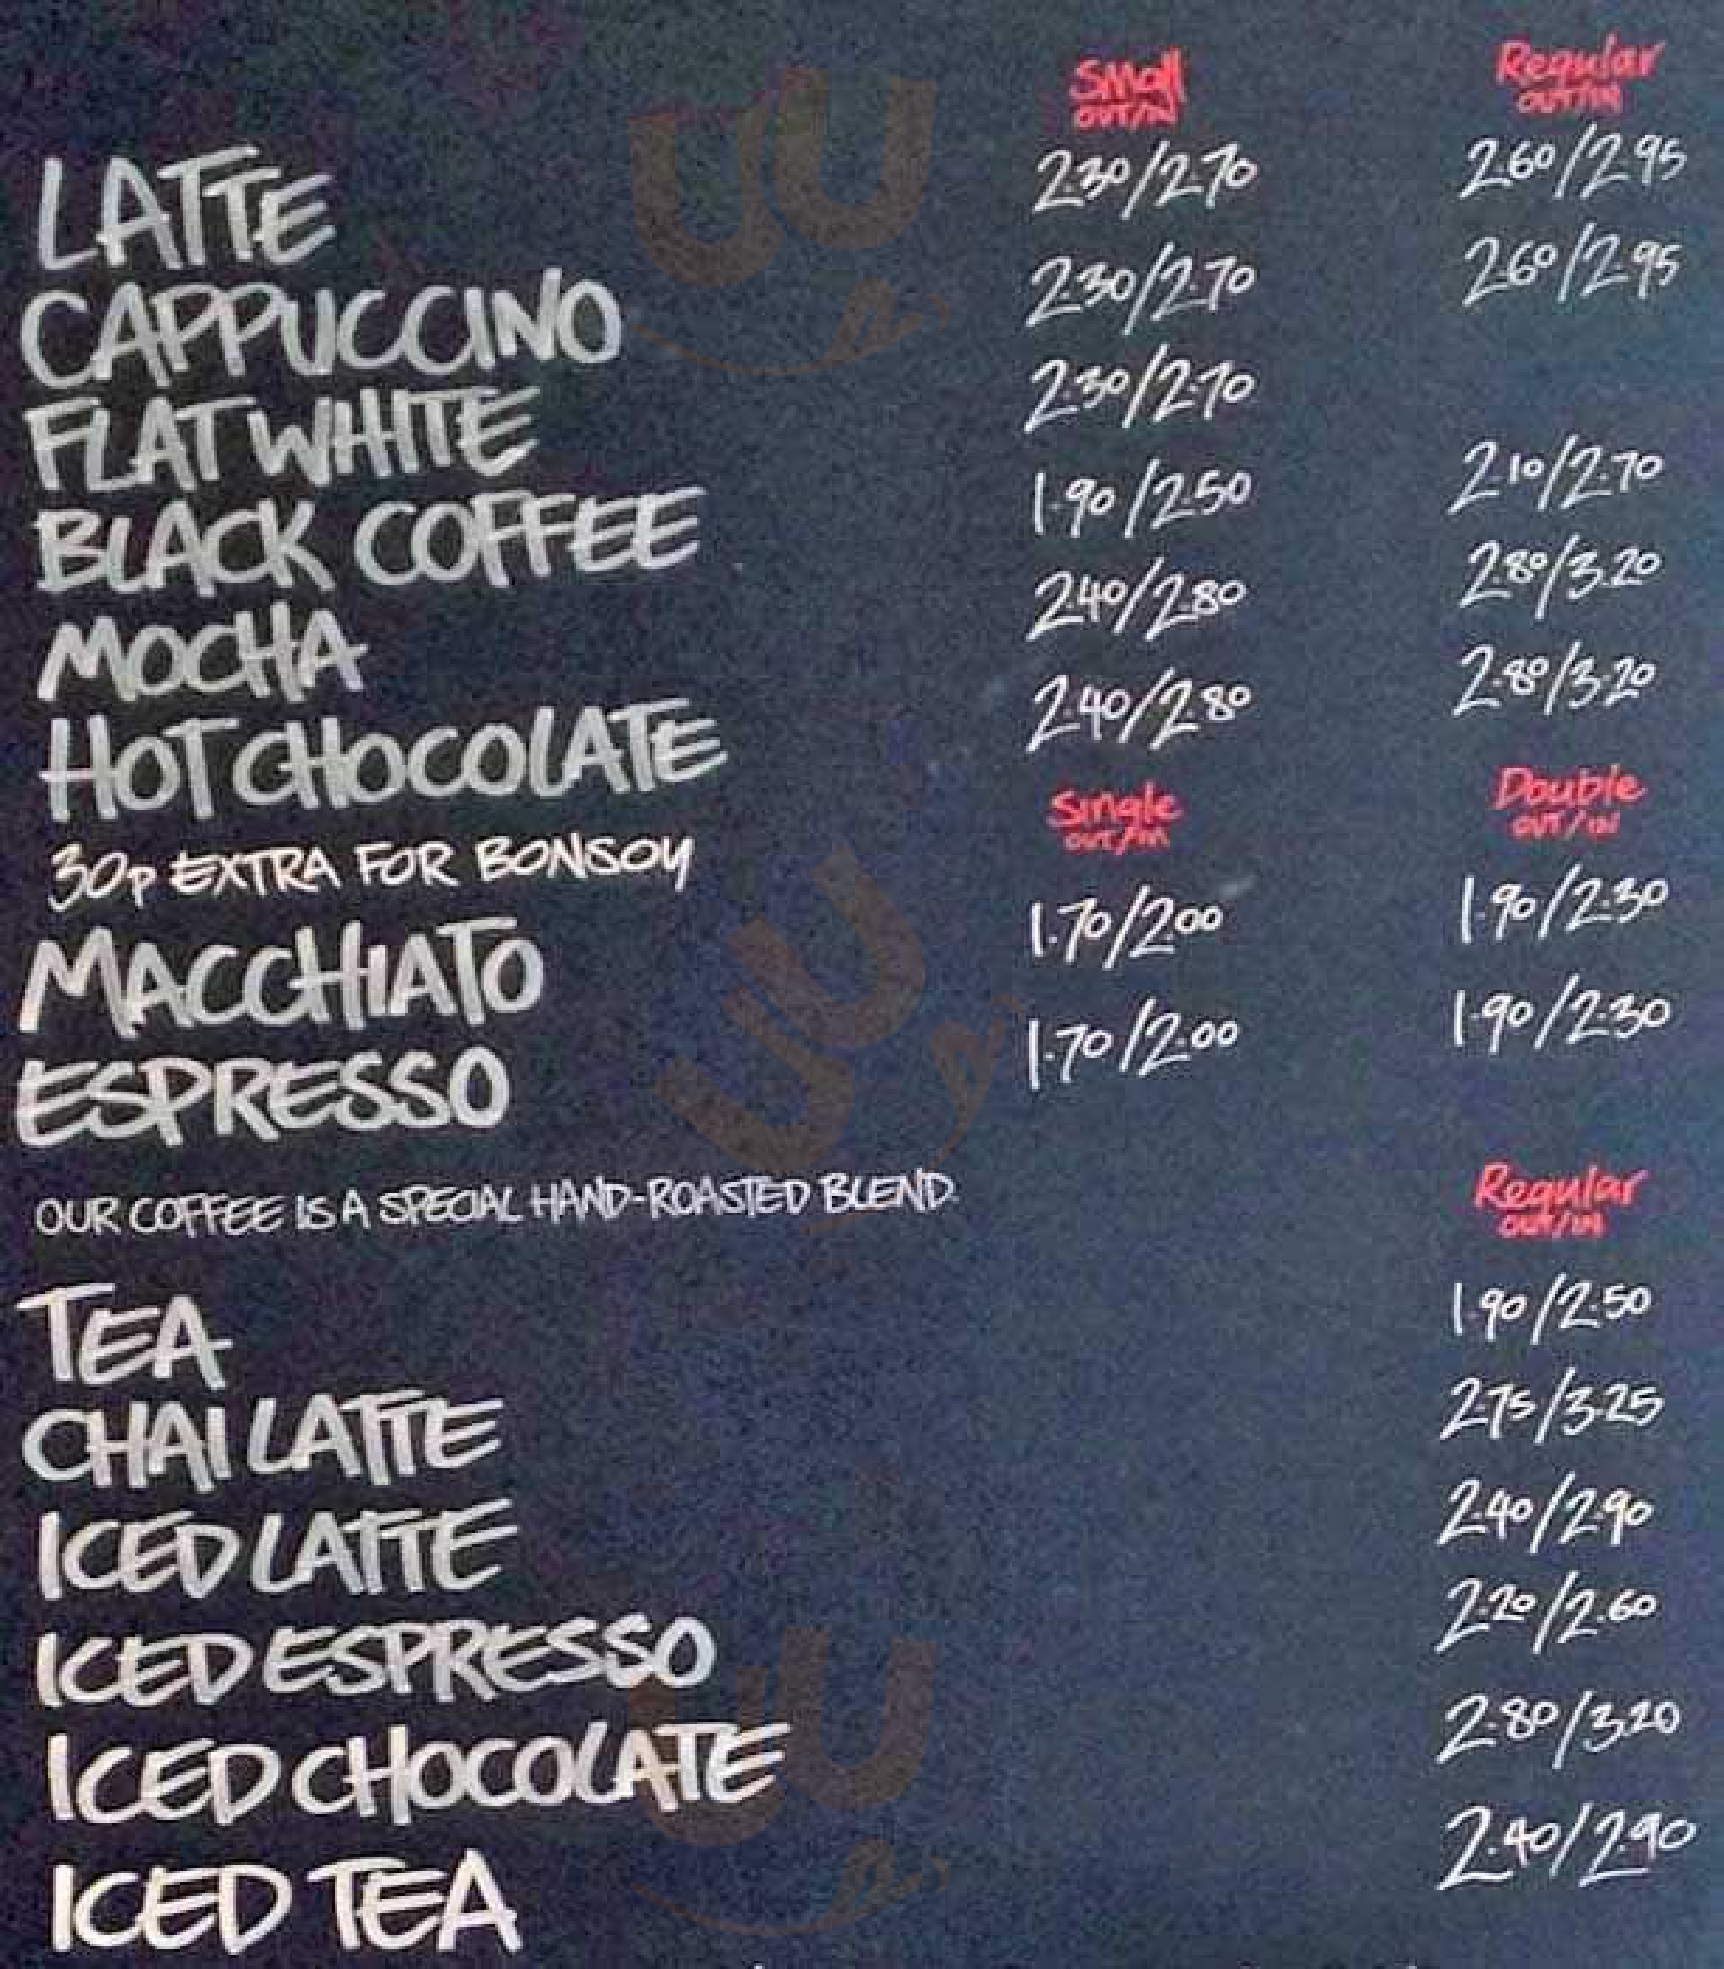 Small Regular
OUT/IN OUT/IN
LATTE 2.30/2.70 2.60/2.95
CAPPUCCINO 2.30/2.70 2.60/2.95
FLAT WHITE 2.30/2.70
BLACK COFFEE 1.90/2.50 2.10/2.70
MOCHA 2.40/2.80 2.80/3.20
HOT CHOCOLATE 2.40/2.80 2.80/3.20
30p EXTRA FOR BONSOY
Single Double
OUT/IN OUT/IN
MACCHIATO 1.70/2.00 1.90/2.30
ESPRESSO 1.70/2.00 1.90/2.30
OUR COFFEE IS A SPECIAL HAND-ROASTED BLEND.
Regular
OUT/IN
TEA 1.90/2.50
CHAI LATTE 2.75/3.25
ICED LATTE 2.40/2.90
ICED ESPRESSO 2.20/2.60
ICED CHOCOLATE 2.80/3.20
ICED TEA 2.40/2.90